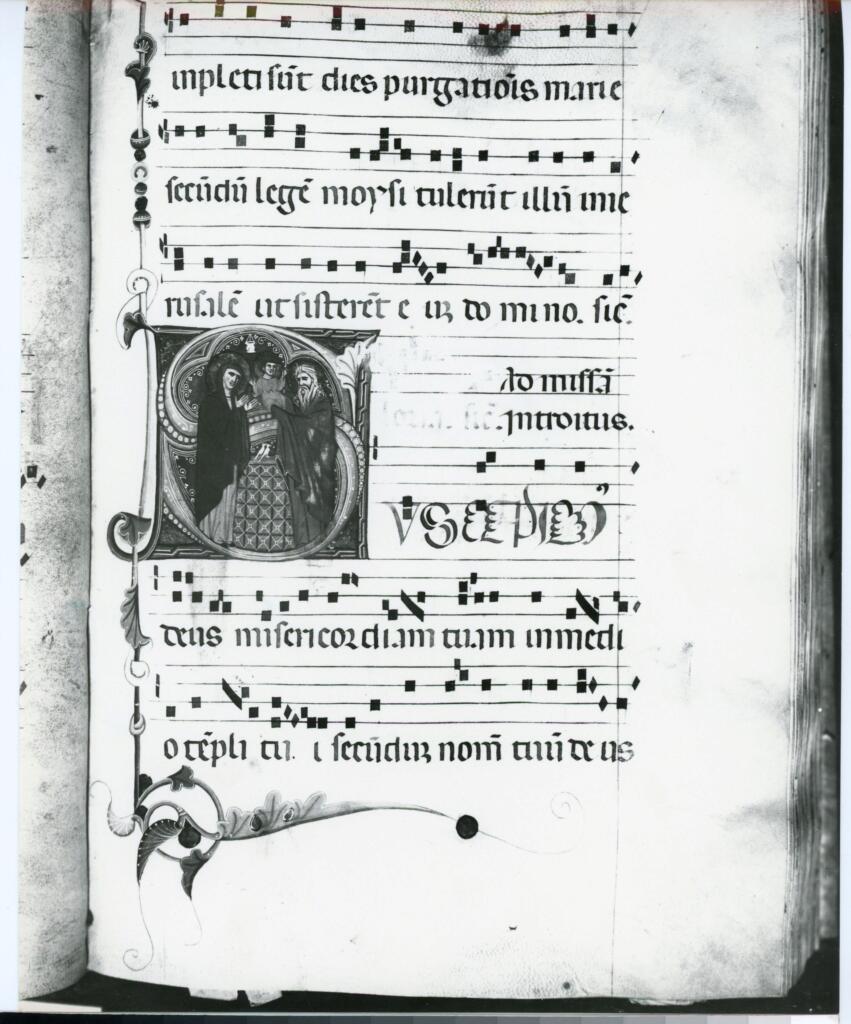 inpleti sūt dies purgatiōis marie
secūdū legē moysi tulerūt illū inie
rusalē ut sisterēt e uʒ do mino. sic̄.
Ad missā
sic̄. Introitus.
USCEPIMꝰ
deus misericordiam tuam in medi
o tēpli tu i secūduʒ nom̄ tuū deus